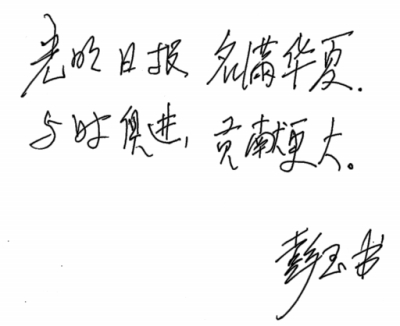 光明日报 名满华夏.
与时俱进, 贡献更大。
彭玉书